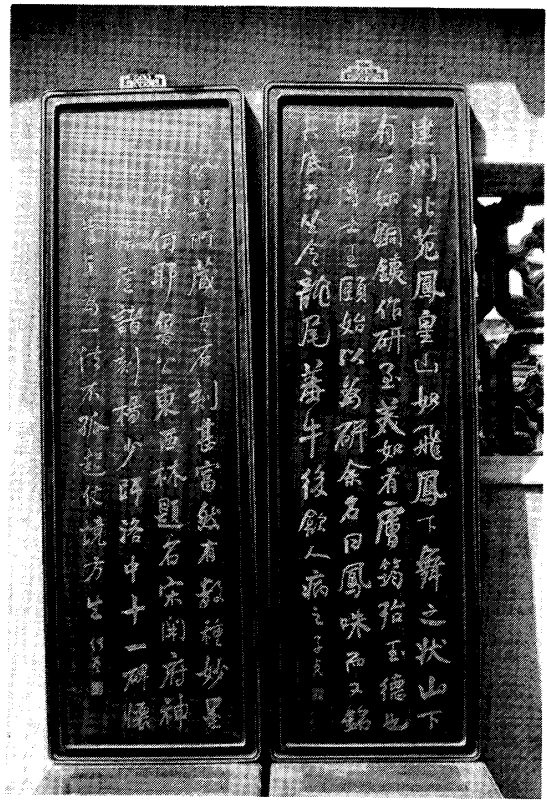 建州北苑鳳皇山如飛鳳下舞之狀山下
有石如銅鐵作研至美如有膚筠殆玉德也
子博士王頤始以為研余名曰鳳咮而又銘
其底云坐令龍尾羞牛後歙人病之子貞
所藏古石刻甚富然有數種妙墨
何耶魯公東西林題名宋開府神
諸刻楊少師洛中十一碑懷
一法不孤起仗境方生